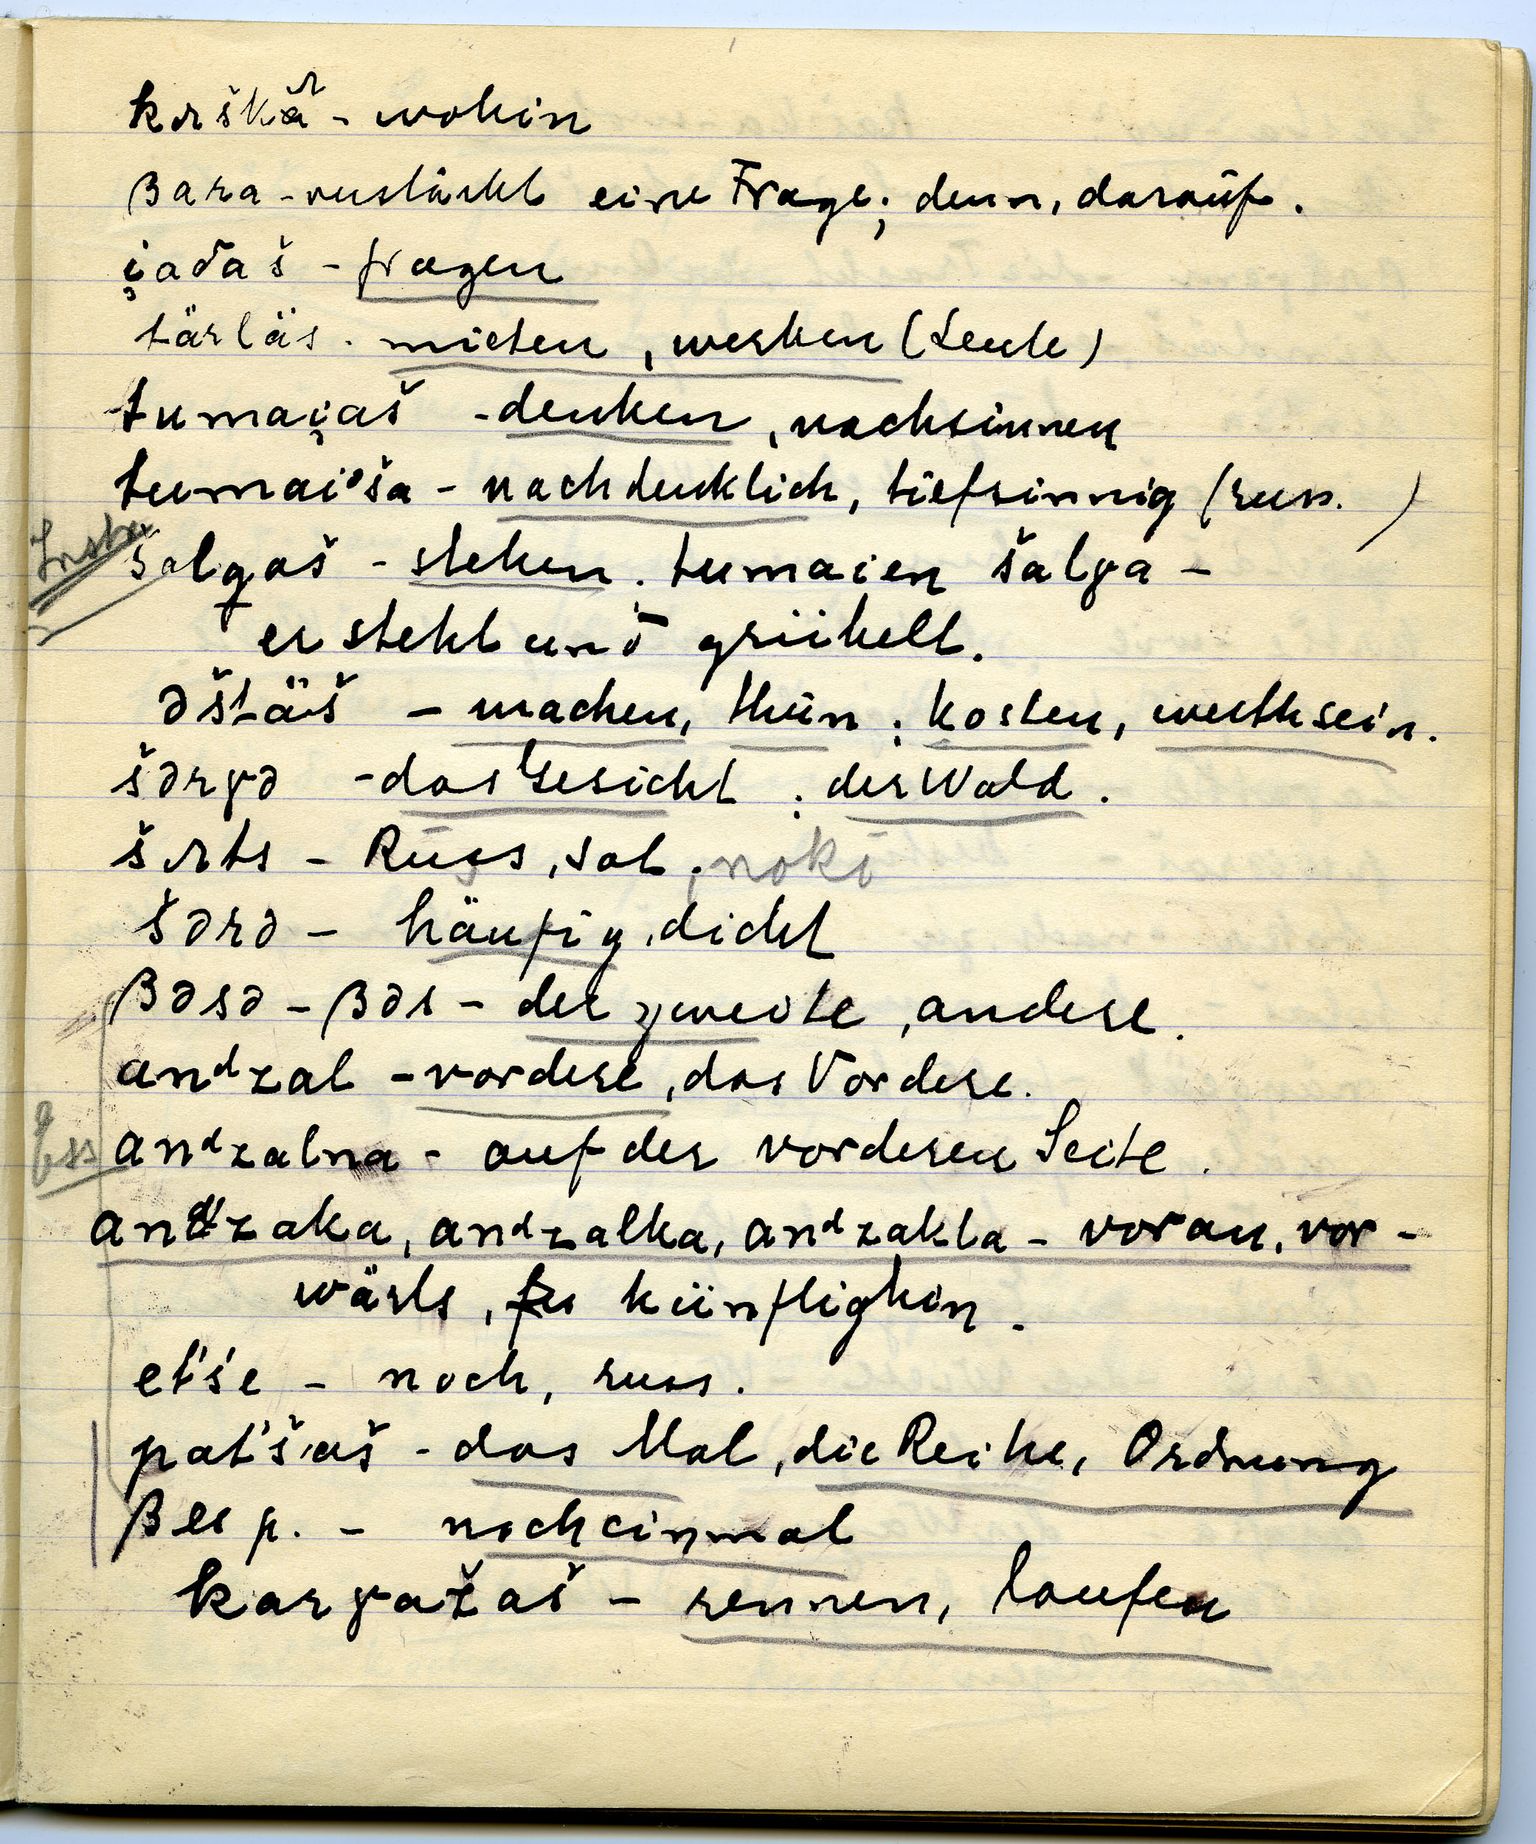 kuškə̑ - wohin
βara - verstärkt eine Frage; denn, darauf.
i̯aδaš - fragen
tärläš - mieten, werben (Leute)
tumai̯aš - denken, nachsinnen
tumaiəša - nachdenklich, tiefsinnig (russ. )
šalgaš - stehen. tumaien šalγa -
er steht und grübelt.
əštäš - machen, thun; kosten, werth sein.
šərγə - das Gesicht; der Wald.
šuts - Russ, sot. noki
šərə - häufig, dicht
βəsə - βəs - der zweite, andere.
anᵈzal - vordere, das Vordere.
anᵈzalna - auf der vorderen Seite.
anᵈzaka, anᵈzalka, anᵈzakla - voran, vor-
wärts, künftighin.
et'š'e - noch, russ.
pat'šaš - das Mal, die Reihe, Ordnung
βes p. - noch einmal
kurγažaš - rennen, laufen